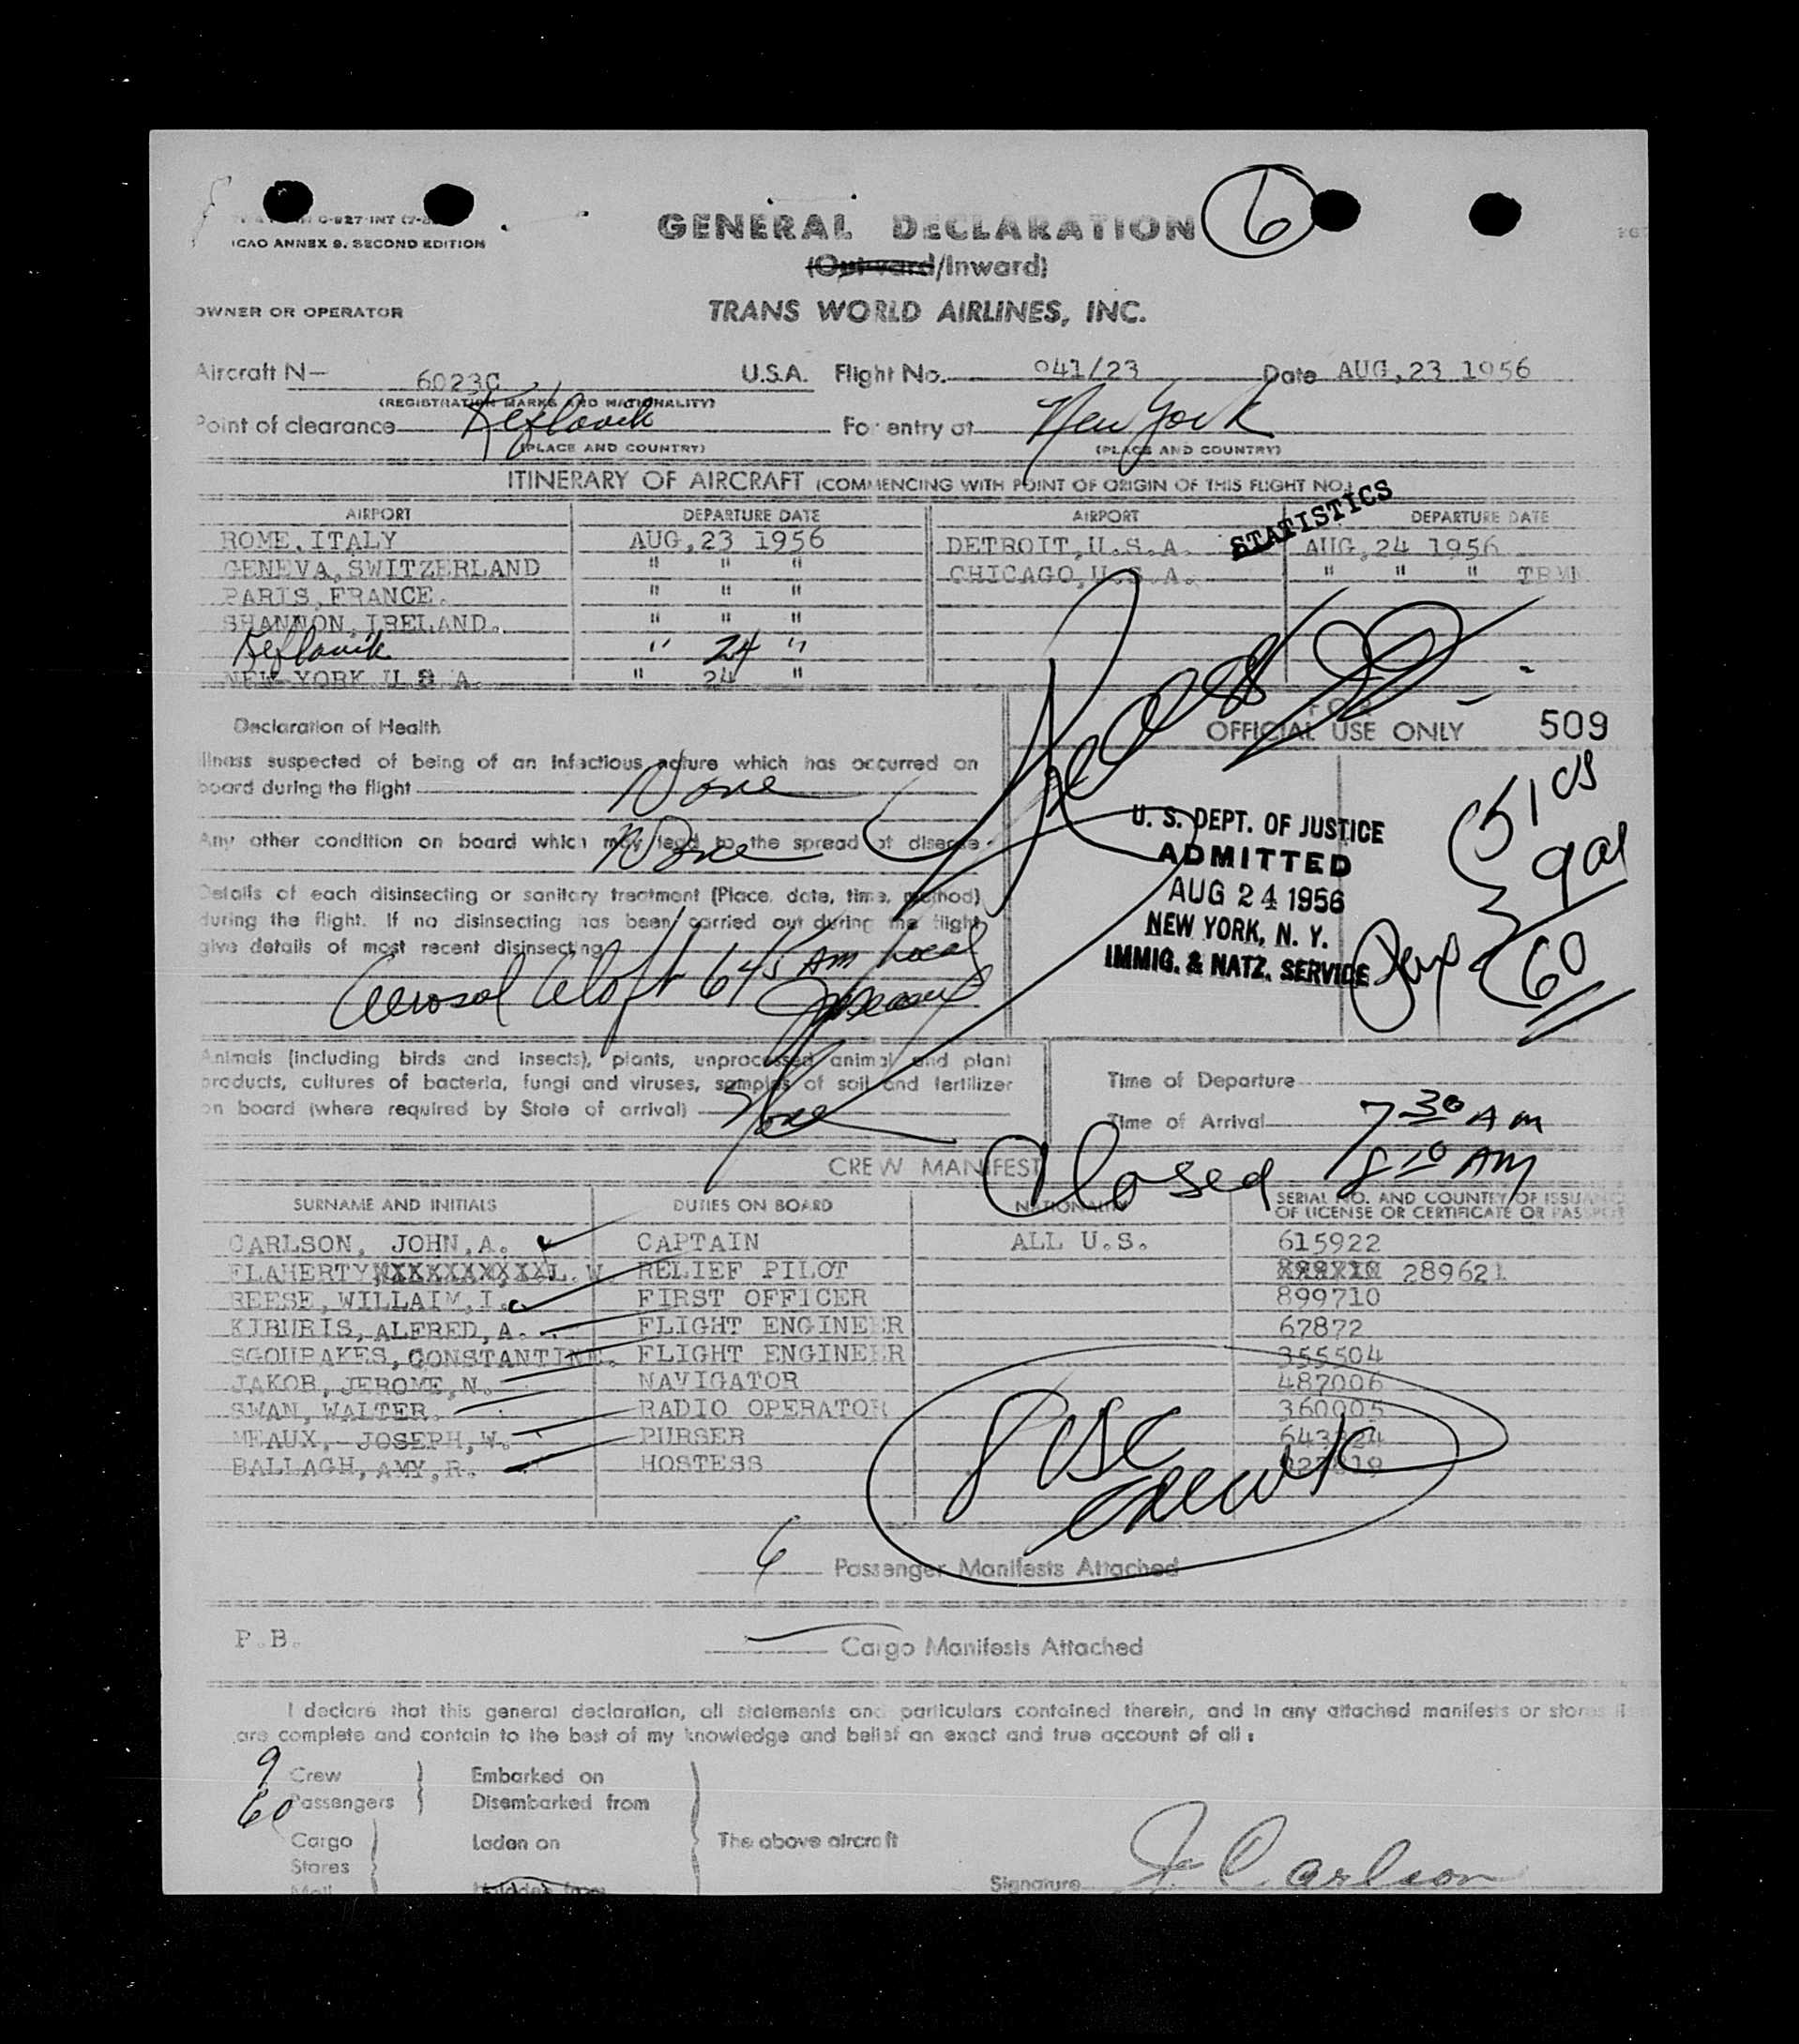 C-827-INT
ICAO ANNEX 9. SECOND EDITION
GENERAL DECLARATION 6
(Outward/Inward)
OWNER OR OPERATOR TRANS WORLD AIRLINES, INC.
Aircraft N— 6023C U.S.A. Flight No. 041/23 Date AUG,23 1956
(REGISTRATION MARKS AND NATIONALITY)
Point of clearance Keflavik For entry at New York
(PLACE AND COUNTRY) (PLACE AND COUNTRY)
ITINERARY OF AIRCRAFT (COMMENCING WITH POINT OF ORIGIN OF THIS FLIGHT NO.)
STATISTICS
AIRPORT DEPARTURE DATE AIRPORT DEPARTURE DATE
ROME.ITALY AUG,23 1956 DETROIT,U.S.A. AUG,24 1956
GENEVA,SWITZERLAND " " " CHICAGO,U.S.A. " " " TRMN
PARIS,FRANCE. " " "
SHANNON,IRELAND. " " "
Keflavik " 24 "
NEW YORK U.S A. " 24 "
Declaration of Health
FOR
OFFICIAL USE ONLY 509
Illness suspected of being of an infectious nature which has occurred on
board during the flight None
Any other condition on board which may lead to the spread of disease
None
Details of each disinsecting or sanitary treatment (Place, date, time, method)
during the flight. If no disinsecting has been carried out during the flight
give details of most recent disinsecting
Aerosol Aloft 645 AM Local
U. S. DEPT. OF JUSTICE
ADMITTED
AUG 24 1956
NEW YORK, N. Y.
IMMIG. & NATZ. SERVICE
51
9
60
Animals (including birds and insects), plants, unprocessed animal and plant
products, cultures of bacteria, fungi and viruses, samples of soil and fertilizer
on board (where required by State of arrival) None
Time of Departure
Time of Arrival 7 30 AM
Closed 8 20 AM
CREW MANIFEST
SURNAME AND INITIALS DUTIES ON BOARD NATIONALITY SERIAL NO. AND COUNTRY OF ISSUANCE
OF LICENSE OR CERTIFICATE OR PASSPORT
CARLSON, JOHN,A. CAPTAIN ALL U.S. 615922
FLAHERTY, L.W. RELIEF PILOT 289621
REESE,WILLAIM,I. FIRST OFFICER 899710
KIBURIS,ALFRED,A. FLIGHT ENGINEER 67872
SGOURAKES,CONSTANTINE. FLIGHT ENGINEER 355504
JAKOB,JEROME,N. NAVIGATOR 487006
SWAN,WALTER. RADIO OPERATOR 360005
MEAUX, JOSEPH,W. PURSER
BALLAGH,AMY,R. HOSTESS
6 Passenger Manifests Attached
P.B.
Cargo Manifests Attached
I declare that this general declaration, all statements and particulars contained therein, and in any attached manifests or stores
are complete and contain to the best of my knowledge and belief an exact and true account of all:
9 Crew Embarked on
60 Passengers Disembarked from
Cargo Laden on The above aircraft
Stores
Mail
Signature J. Carlson